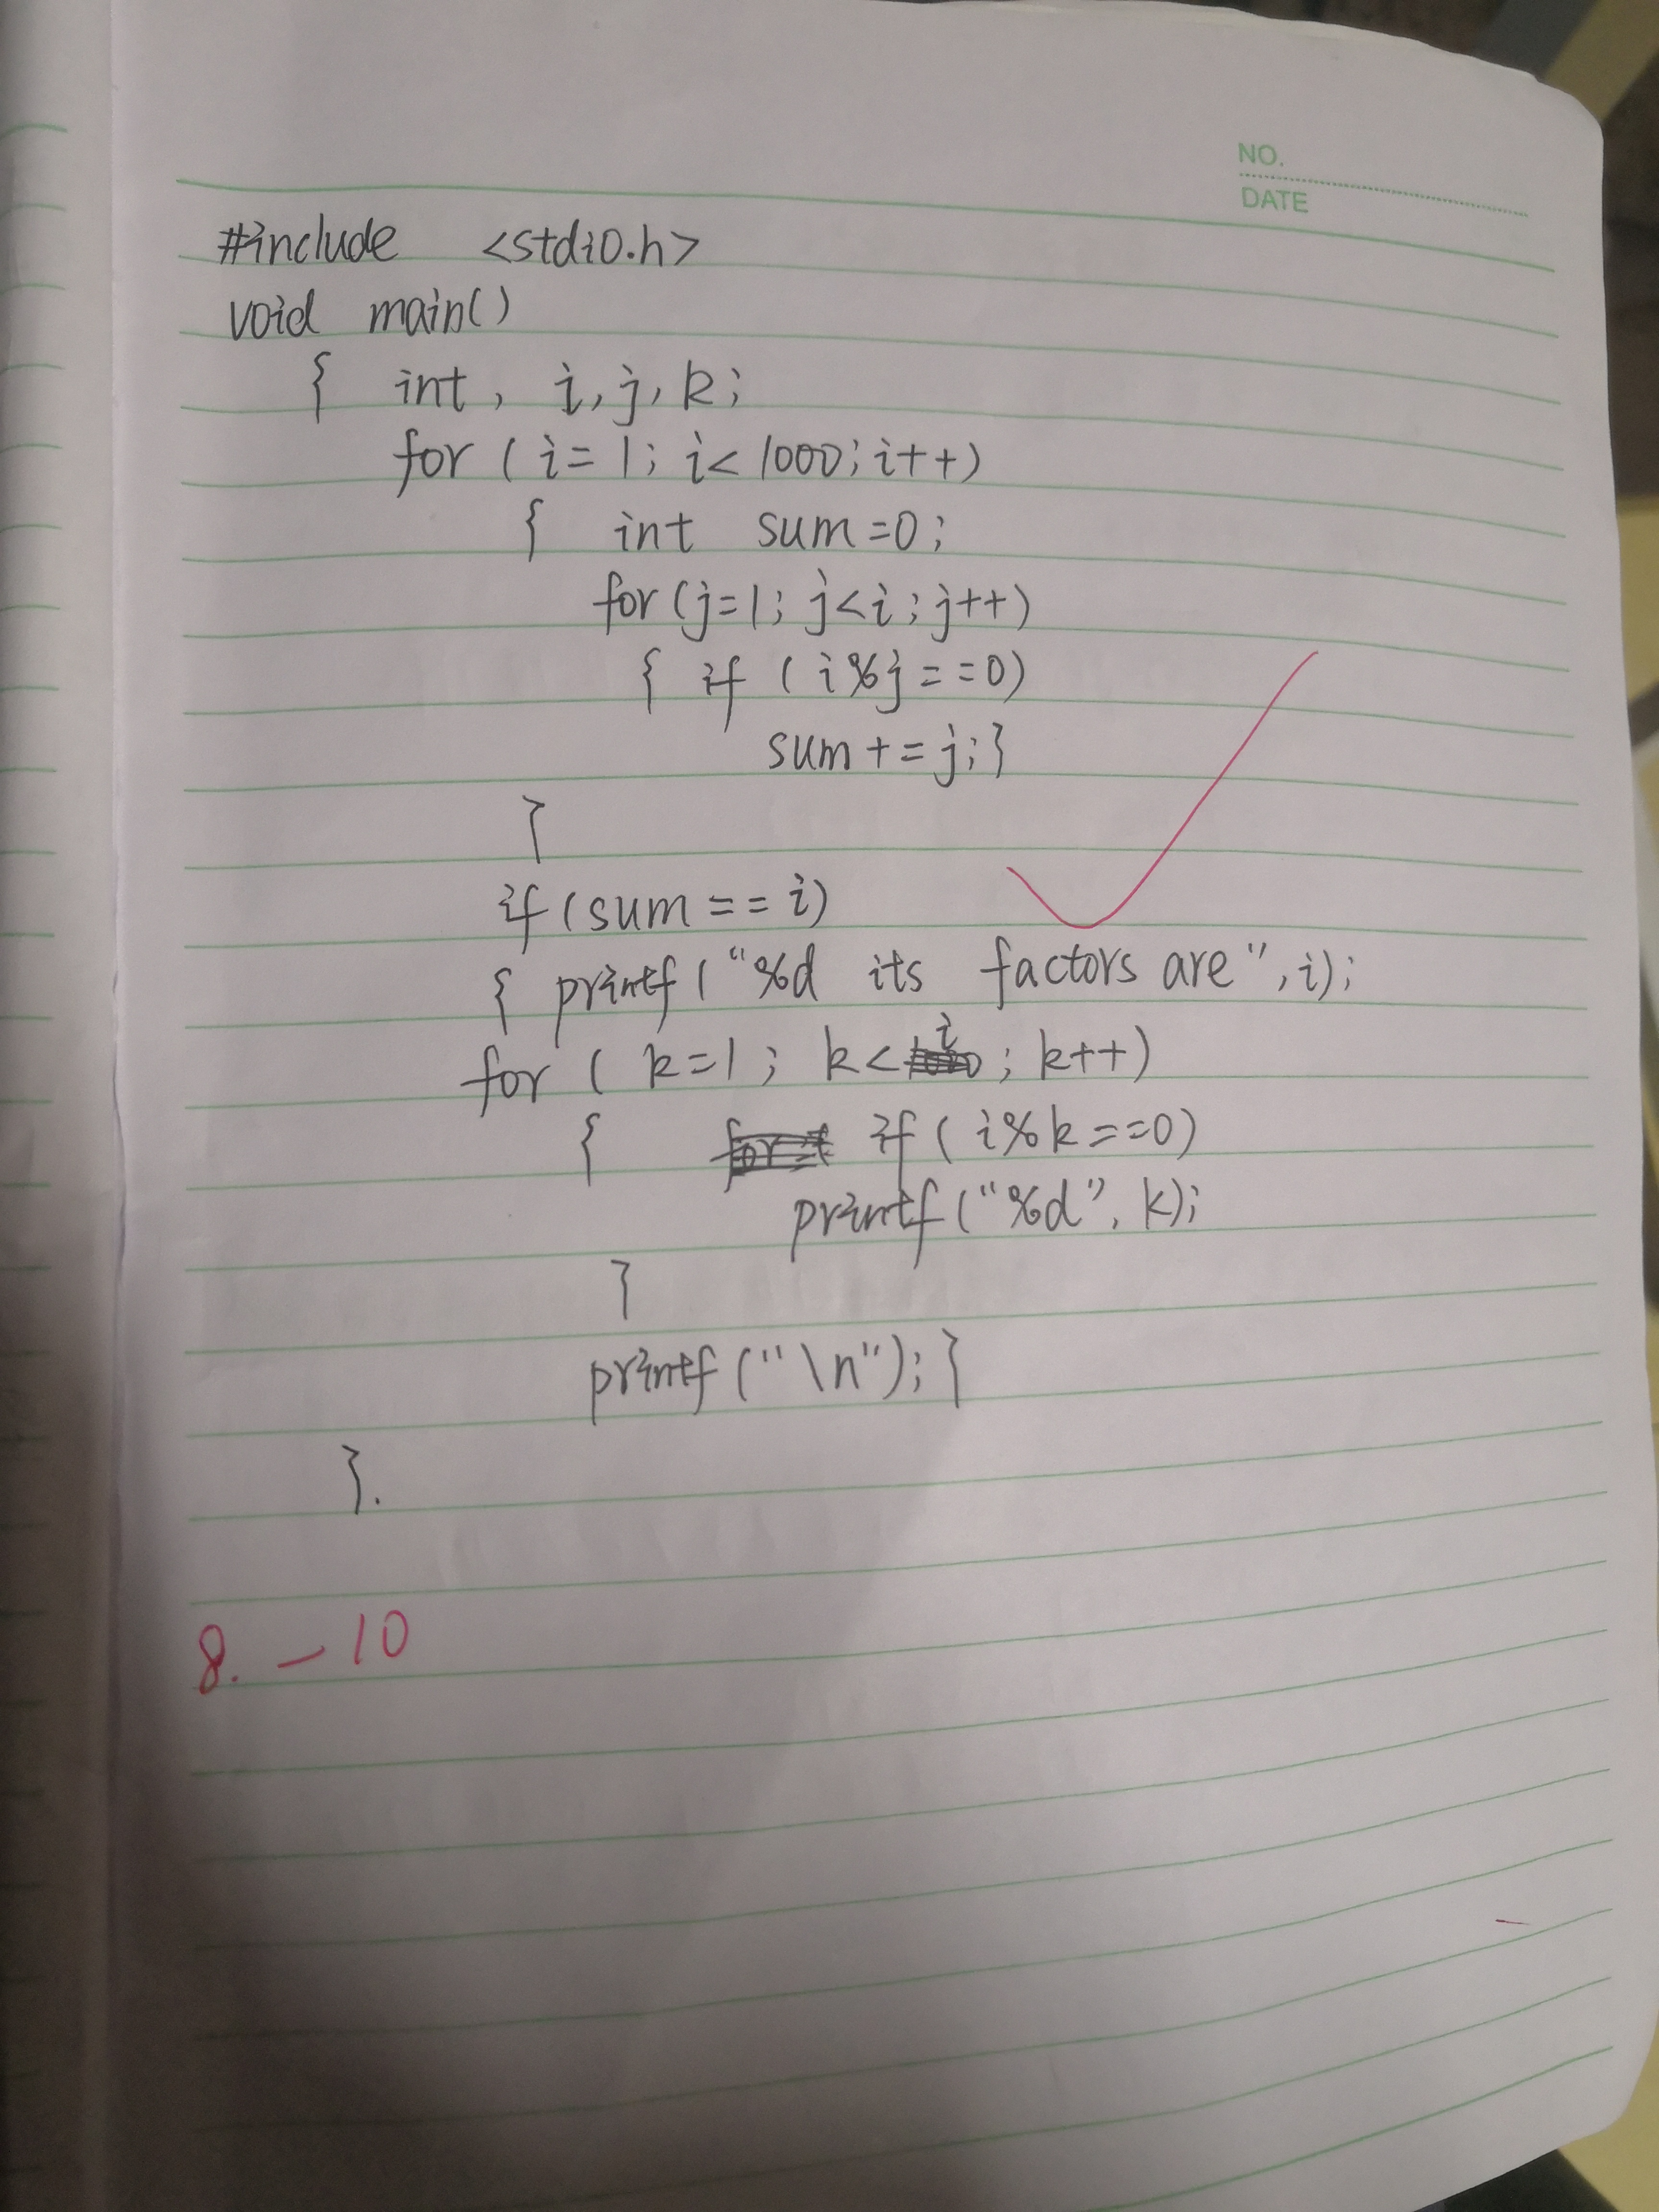 NO.
DATE
#include <stdio.h>
void main()
{ int, i, j, k;
for (i=1; i<1000; i++)
{ int sum=0;
for (j=1; j<i; j++)
{ if (i%j==0)
sum+=j;}
}
if (sum==i)
{ printf("%d its factors are", i);
for (k=1; k<i; k++)
{ if (i%k==0)
printf("%d", k);
}
printf("\n");}
}.
8. -10